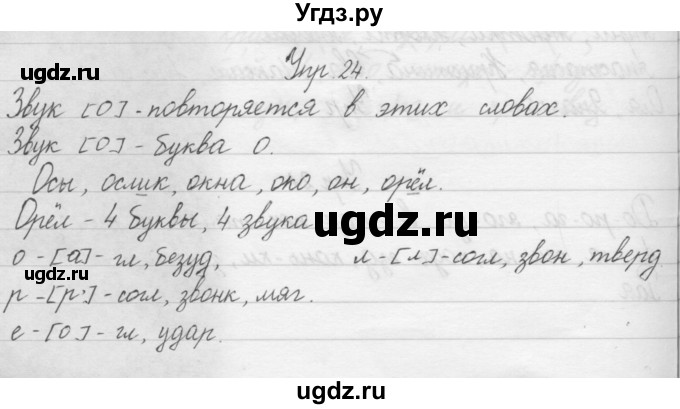 Угдз.ру
ugdz.ru
ugdz.ru
Упр 24.
Звук [О] - повторяется в этих словах.
Звук [О] - буква О.
ugdz.ru
Осы, ослик, окна, око, он, орёл.
Орёл - 4 буквы, 4 звука
ugdz.ru
о - [а] - гл, безуд,
л - [л] - согл, звон, тверд
р - [р'] - согл, звонк, мяг.
е - [о] - гл, удар.
ugdz.ru
ugdz.ru